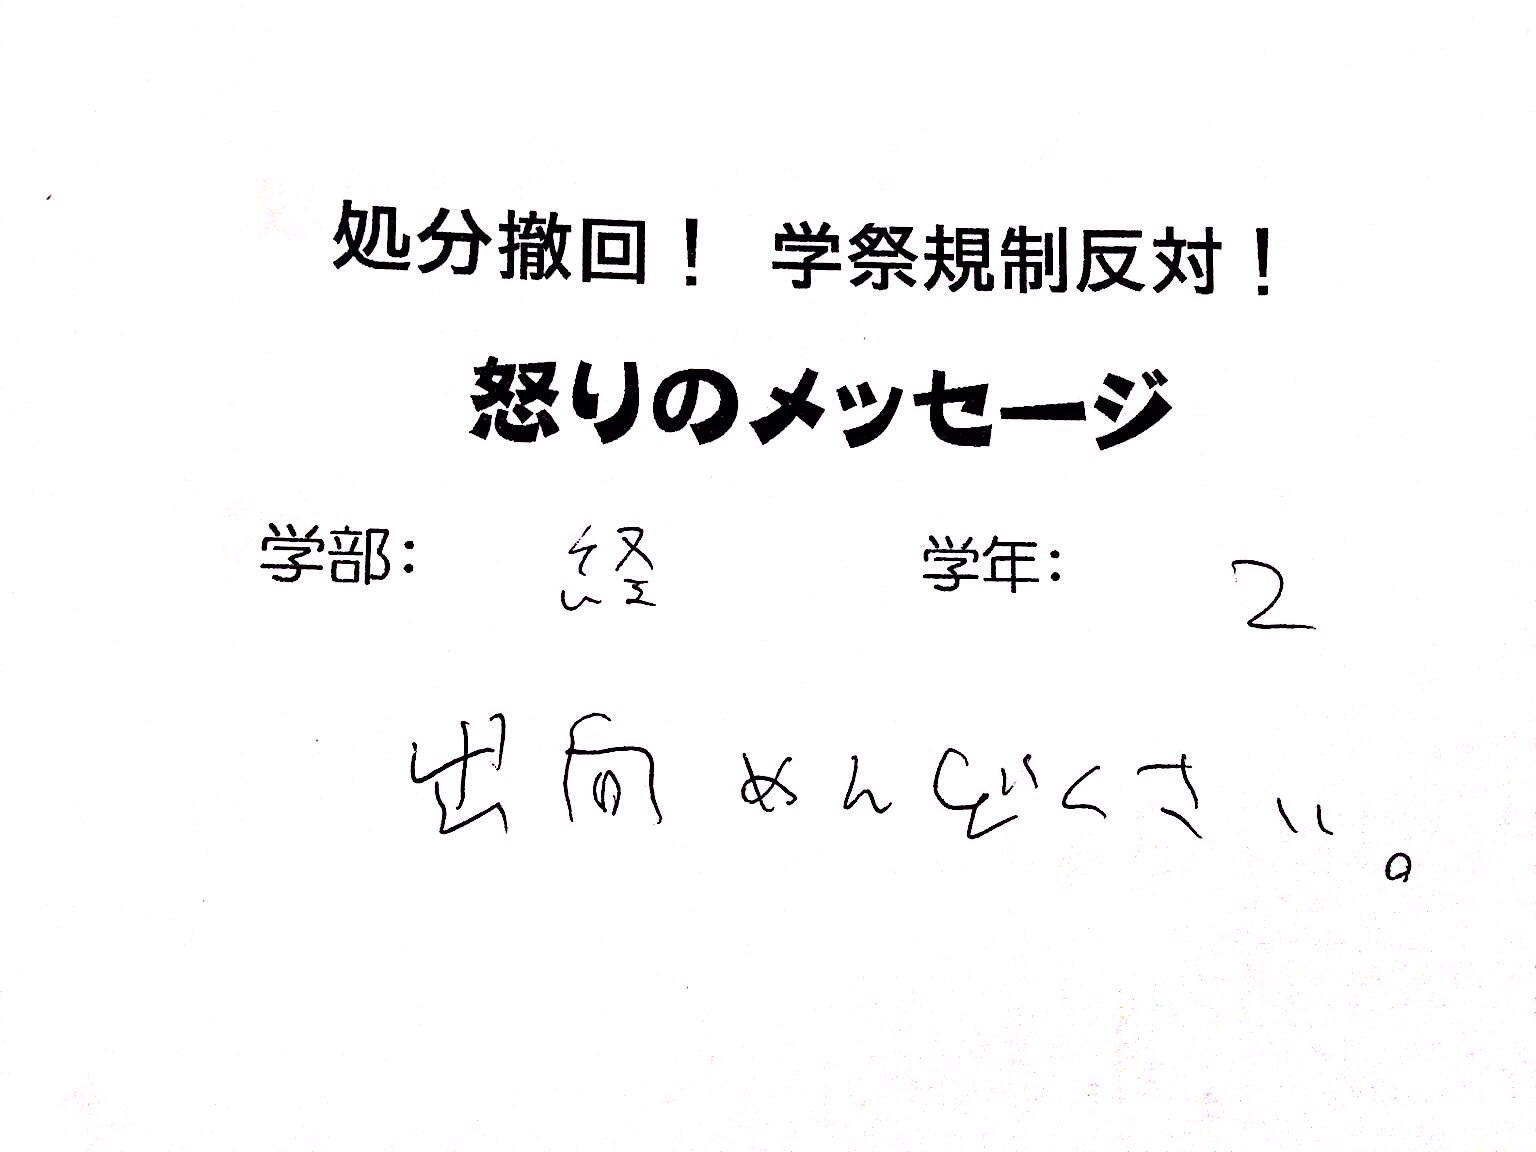 処分撤回！ 学祭規制反対！
怒りのメッセージ
学部： 経 学年： 2
出向めんどくさい。